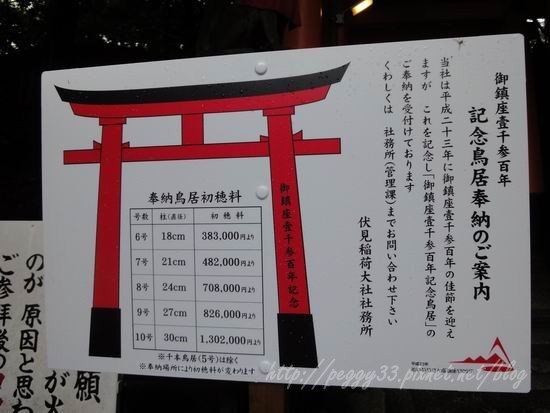 御鎮座壹千参百年
記念鳥居奉納のご案内
当社は平成二十三年に御鎮座壹千参百年の佳節を迎え
ますが これを記念し「御鎮座壹千参百年記念鳥居」の
ご奉納を受付けております
くわしくは 社務所(管理課)までお問い合わせ下さい
伏見稲荷大社社務所
御鎮座壹千参百年記念
奉納鳥居初穂料
号数 柱(直径) 初穂料
6号 18cm 383,000円より
7号 21cm 482,000円より
8号 24cm 708,000円より
9号 27cm 826,000円より
10号 30cm 1,302,000円より
※千本鳥居(5号)は除く
※奉納場所により初穂料が変わります
願
が火
のが原因と思わ
ご参拝の
http://peggy33.pixnet.net/blog